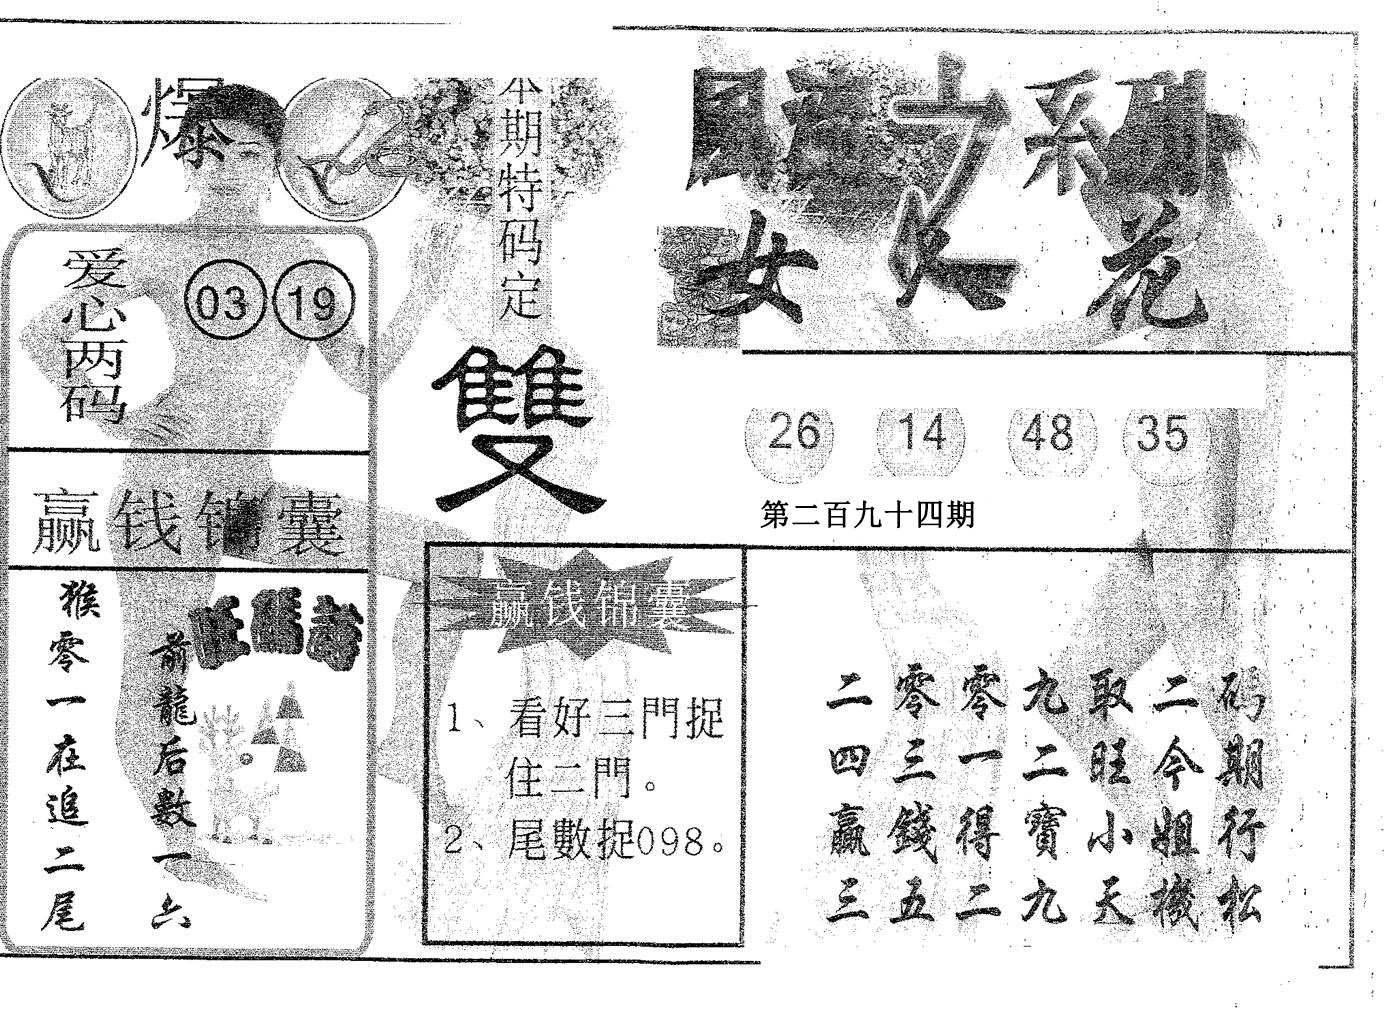 爆
本期特码定
雙
爱心两码
03 19
赢钱锦囊
猴零一在追二尾
前龍后數一六
赢钱锦囊
1、看好三門捉
住二門。
2、尾數捉098。
女 花
26 14 48 35
第二百九十四期
二零零九取二码
四三一二旺今期
赢錢得寶小姐行
三五二九天機松